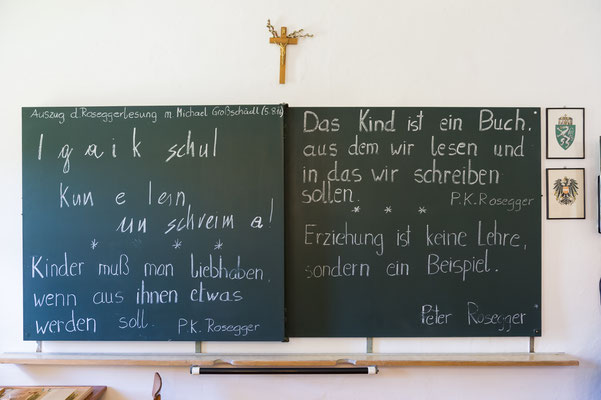 Auszug d. Roseggerlesung m. Michael Großschädl (5.8.16)
I g a i k schul
Kun e lern
un schreim a!
* * *
Kinder muß man liebhaben,
wenn aus ihnen etwas
werden soll. P.K. Rosegger
Das Kind ist ein Buch,
aus dem wir lesen und
in das wir schreiben
sollen. P.K. Rosegger
* * *
Erziehung ist keine Lehre,
sondern ein Beispiel.
Peter Rosegger